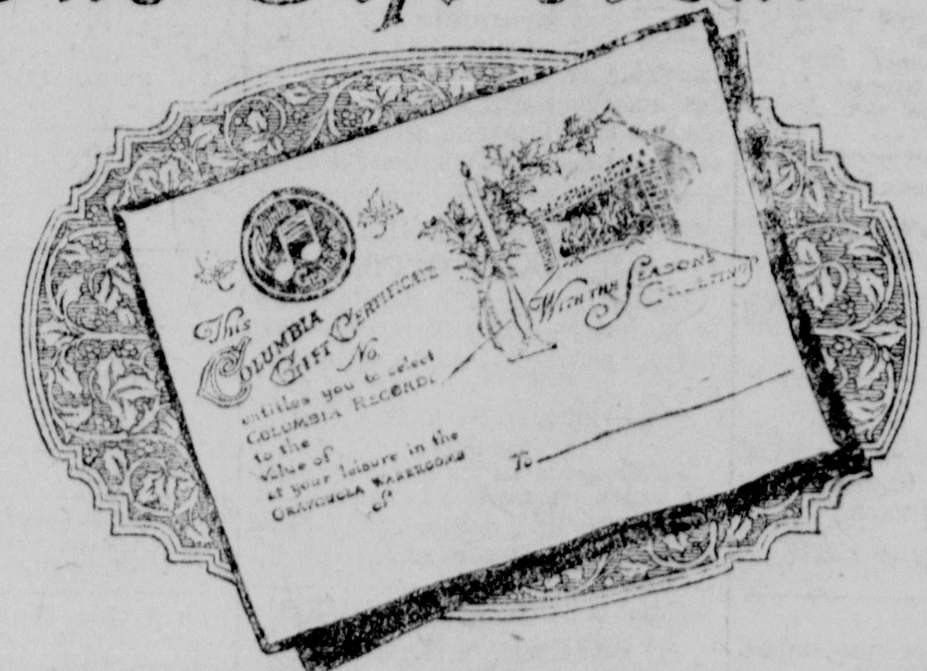 This
COLUMBIA
GIFT CERTIFICATE
No.
entitles you to select
COLUMBIA RECORDS
to the
value of
at your leisure in the
GRAFONOLA WAREROOMS
of
WITH THE SEASON'S
GREETINGS
To